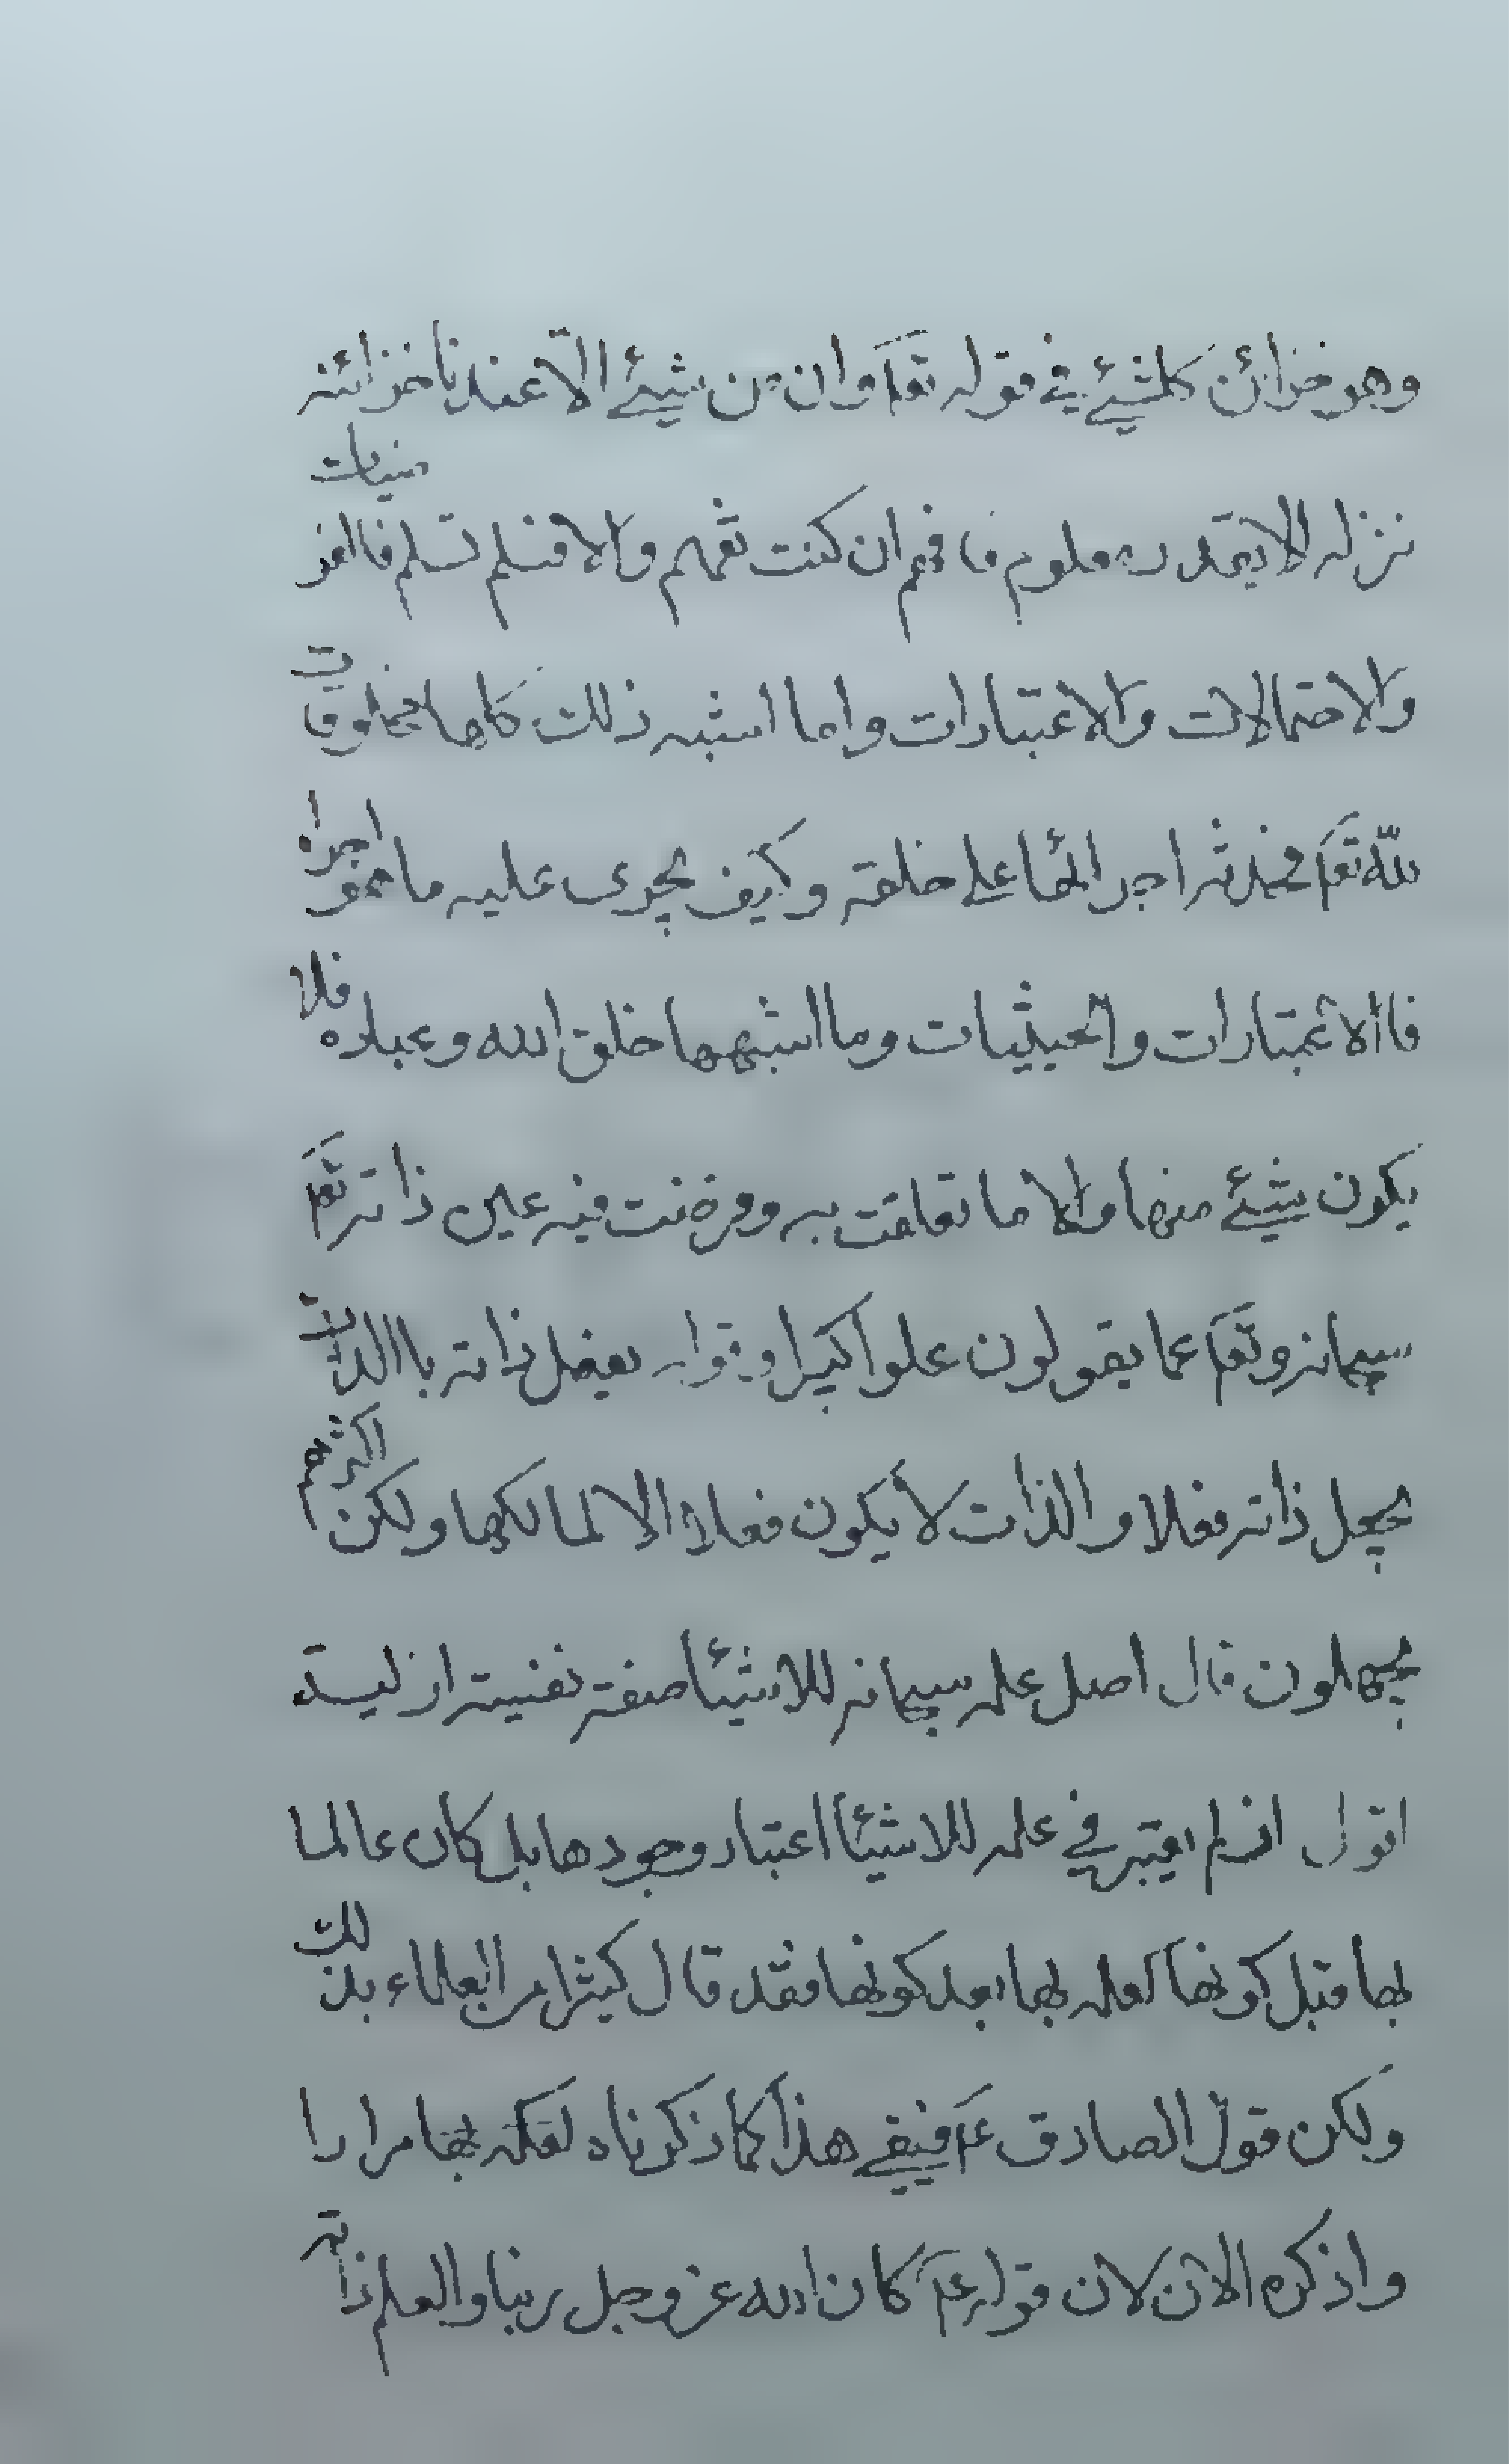 وهو خزائن كلشيئ في قوله تعا وان من شيئ الّا عندنا خزائنه
ننزله الا بقدر معلوم فافهم ان كنت تفهم والا فسلم تسلم فاالفرضيات
والاحتمالات والاعتبارات واما اشبه ذلك كلها مخلوقات
للّه تعا محدثه اجرائها على خلقه وكيف يجرى عليه ما هو اجراه
فاالاعتبارات والحيثيات وما اشبهها خلق الله وعباده فلا
يكون شيئ منها والا ما تعلقت به وفرضت فيه عين ذاته تعا
سبحانه وتعا عما يقولون علوا كبيرا وقوله يفعل ذاته باالذات
يجعل ذاته فعلا والذات لا يكون فعلا الا لمالكها ولكن اكثرهم
يجهلون قال اصل علمه سبحانه للاشيئا صفة نفسية ازلية
اقول انه لم يعتبر في علمه للاشيئا اعتبار وجودها بل كان عالما
بها قبل كونها كعلمه بها بعد كونها فقد قال كثيرا من العلماء بذلك
ولكن قول الصادق عم فينفي هذا كما ذكرناه لعلكه بها مرارا
واذكره الان لان قوله عم كان الله عز وجل ربنا والعلم ذاته